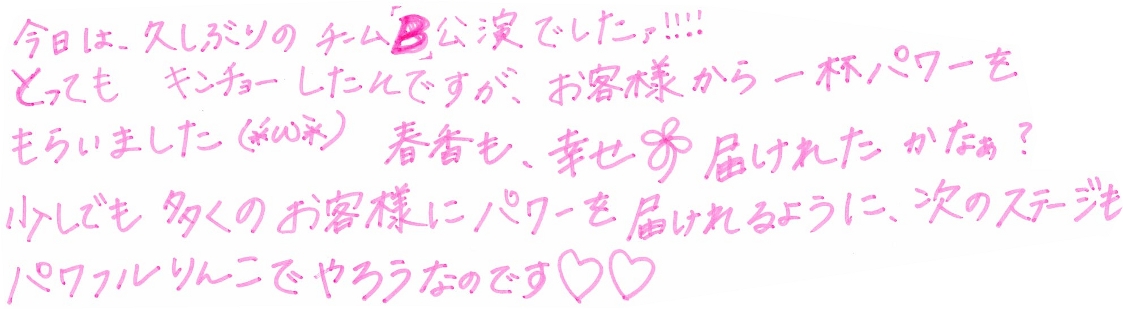 今日は、久しぶりの チーム「B」公演でしたァ!!!!
とっても キンチョーしたんですが、お客様から一杯パワーを
もらいました(*ω*) 春香も、幸せ 届けれた かなぁ?
少しでも 多くの お客様に パワーを 届けれるように、次のステージも
パワフルりんこで やろうなのです♡♡